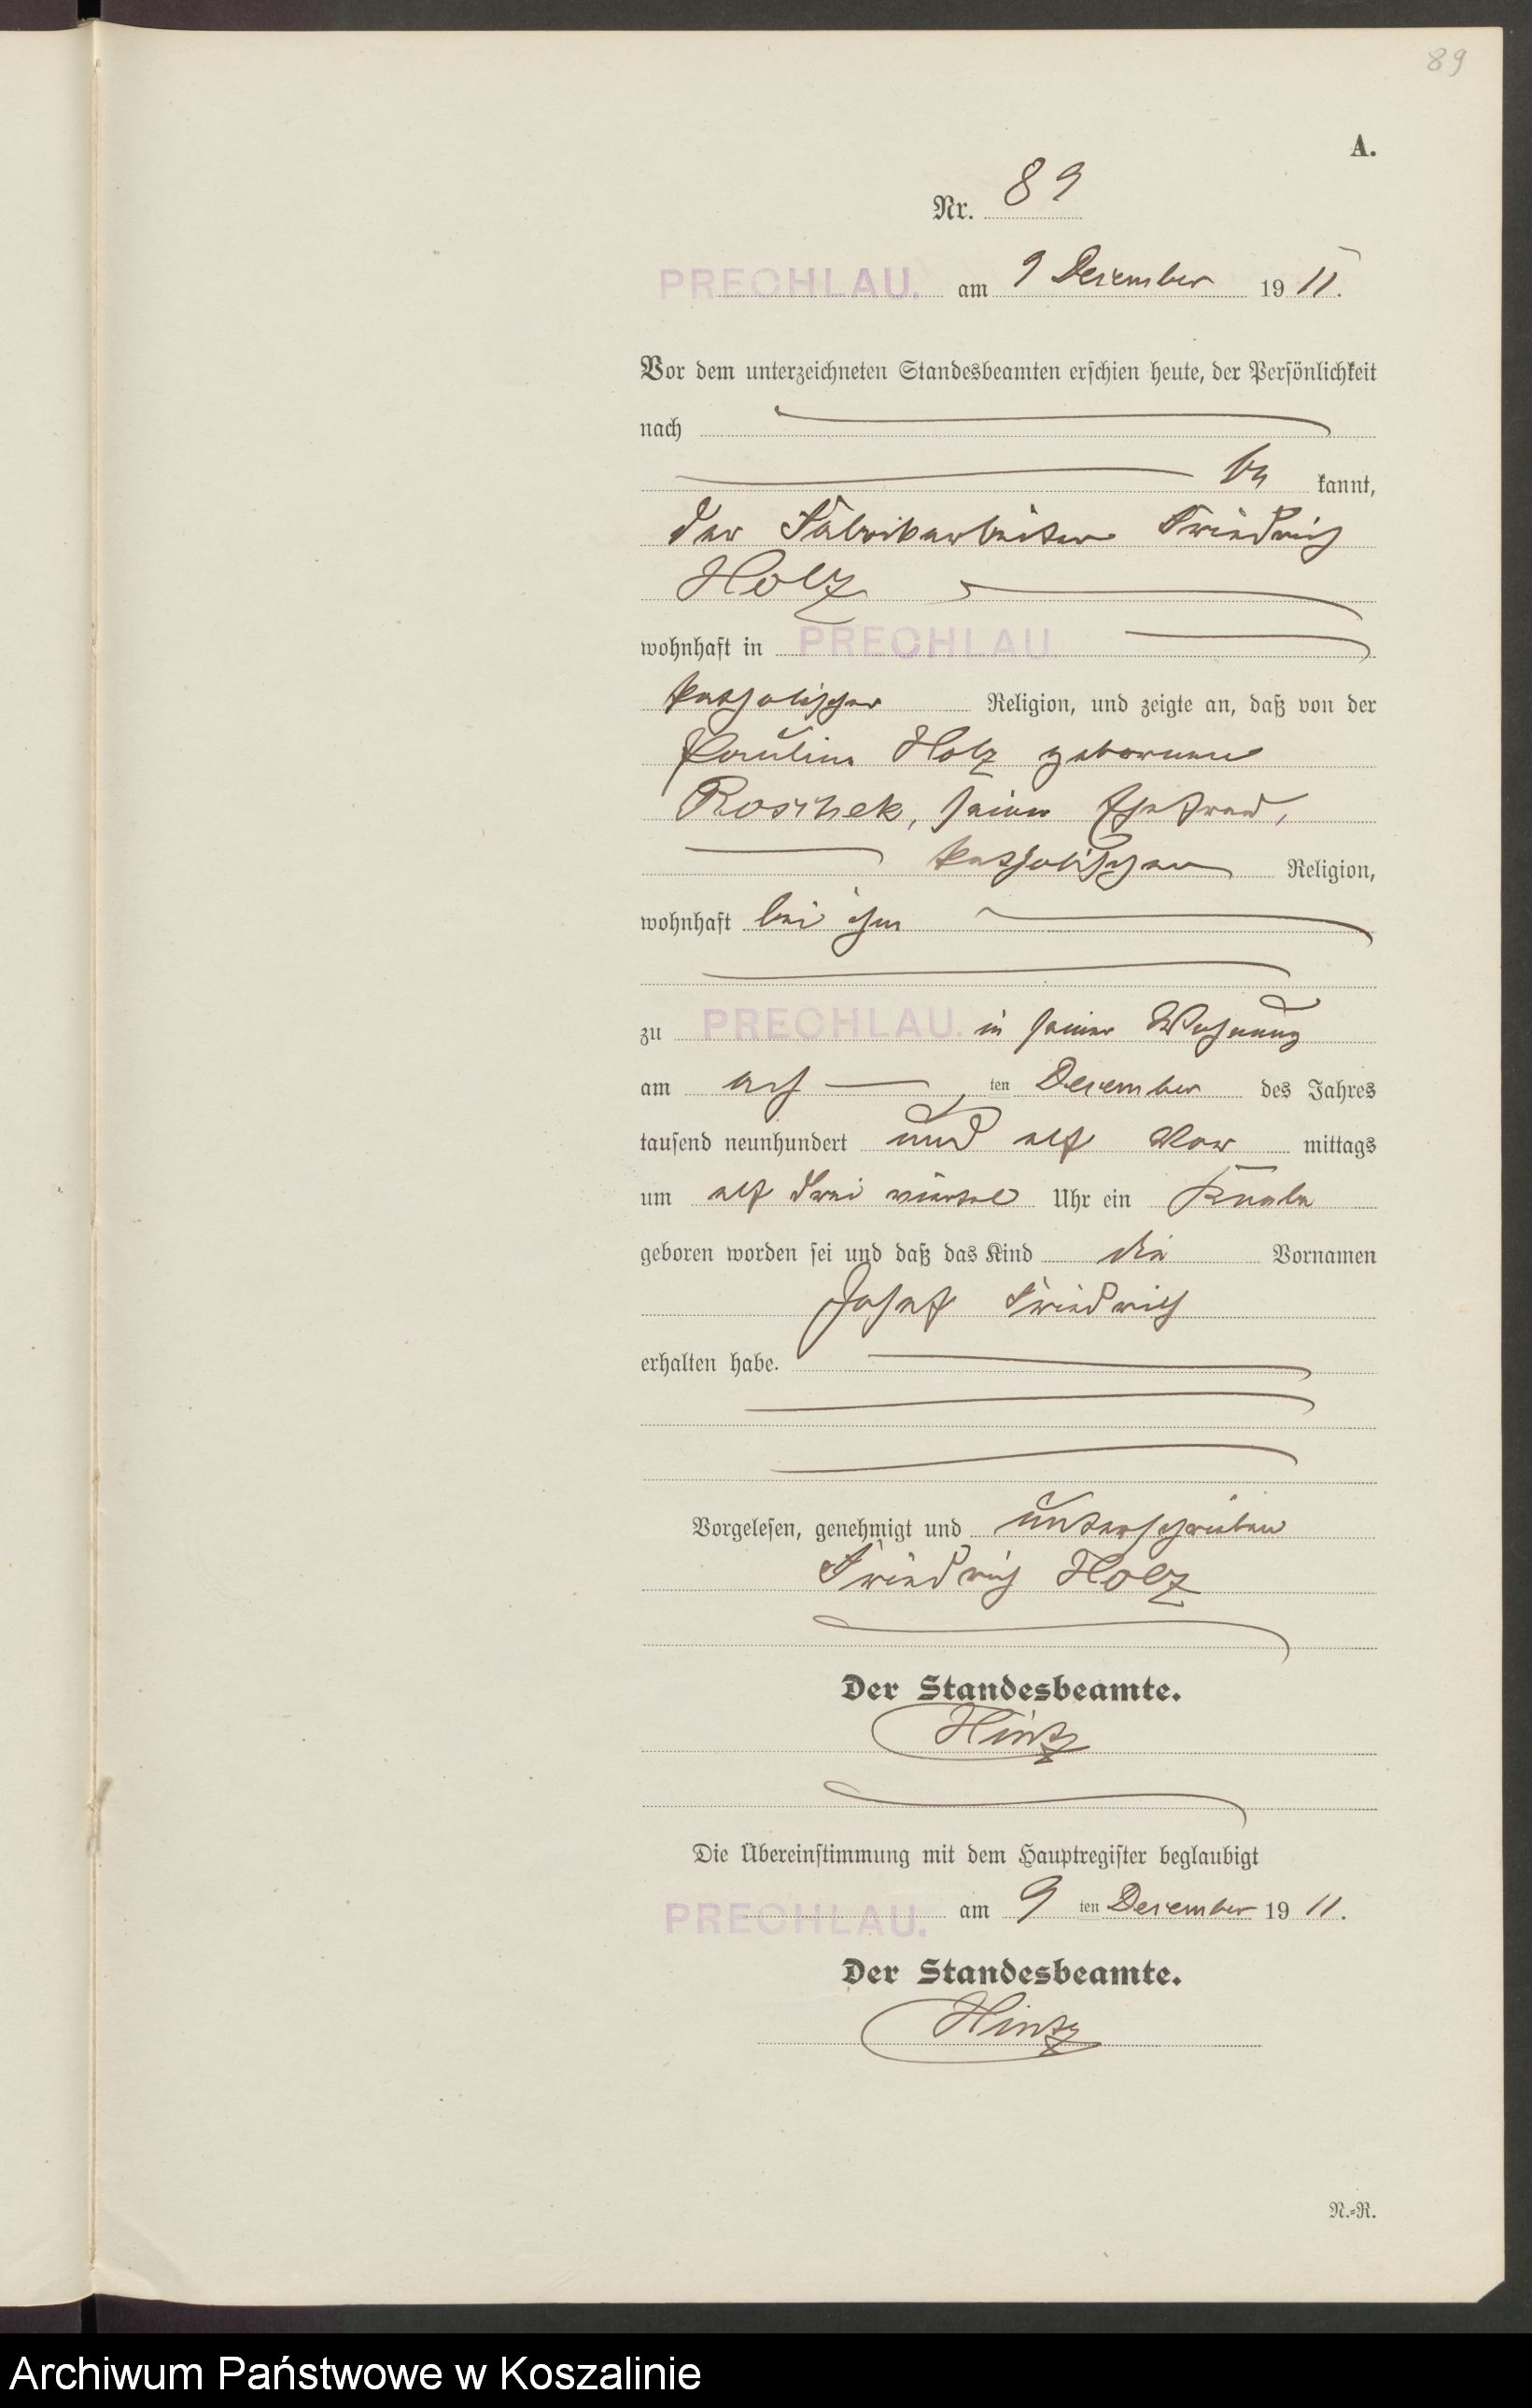 89
A.
Nr. 89
PRECHLAU. am 9 Dezember 1911.
Vor dem unterzeichneten Standesbeamten erschien heute, der Persönlichkeit
nach
be kannt,
der Fabrikarbeiter Friedrich
Holz
wohnhaft in PRECHLAU.
katholischer Religion, und zeigte an, daß von der
Pauline Holz geborenen
Roschek, seiner Ehefrau,
katholischer Religion,
wohnhaft bei ihm
zu PRECHLAU. in seiner Wohnung
am acht ten Dezember des Jahres
tausend neunhundert und elf Vor mittags
um elf drei viertel Uhr ein Knabe
geboren worden sei und daß das Kind die Vornamen
Josef Friedrich
erhalten habe.
Vorgelesen, genehmigt und unterschrieben
Friedrich Holz
Der Standesbeamte.
Hintz
Die Übereinstimmung mit dem Hauptregister beglaubigt
PRECHLAU. am 9 ten Dezember 1911.
Der Standesbeamte.
Hintz
N.-R.
Archiwum Państwowe w Koszalinie